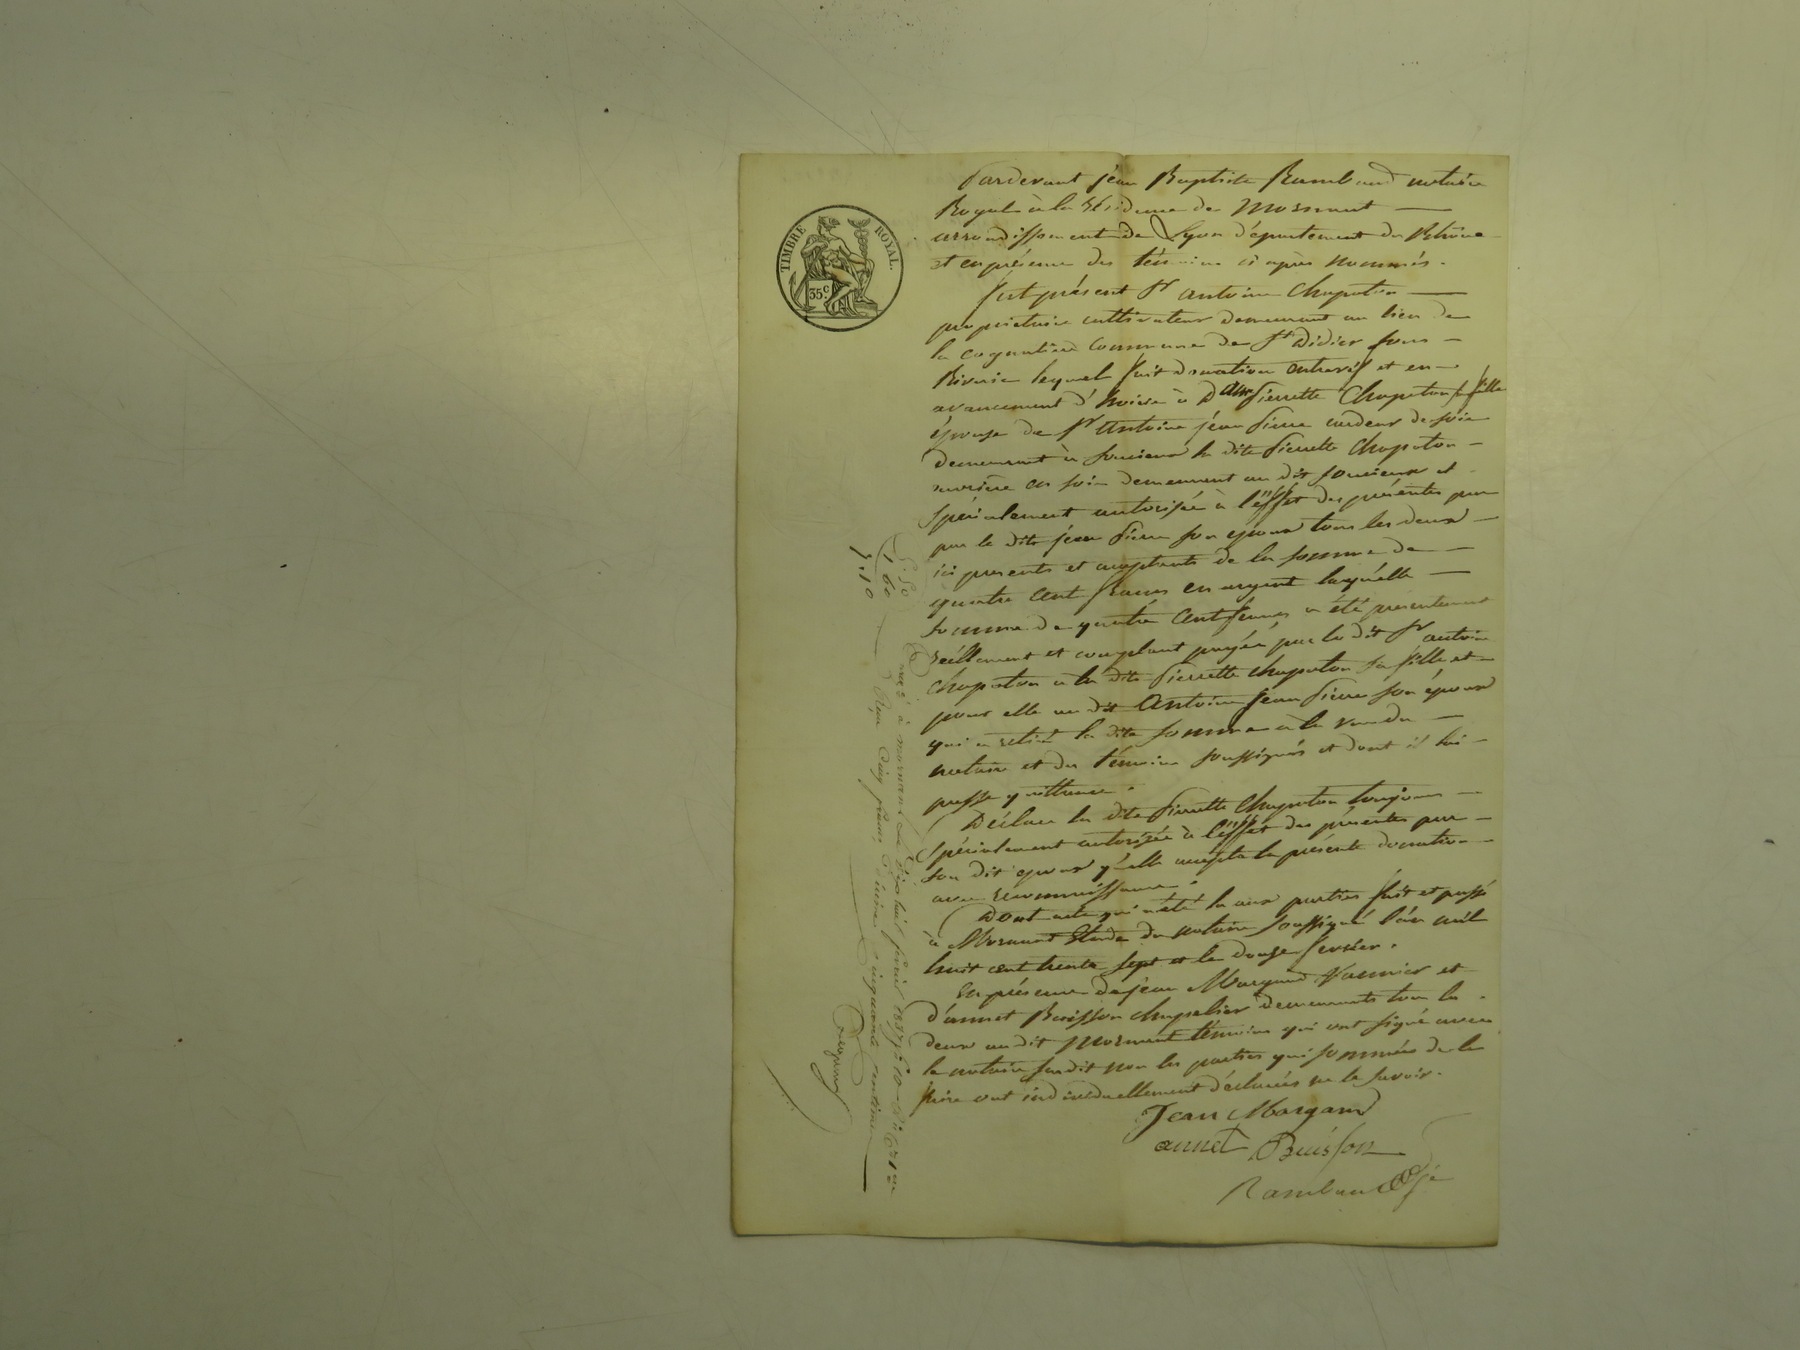 TIMBRE ROYAL.
35 c.
Pardevant jean Baptiste Rambaud notaire
Royal à la résidence de Mornant
arrondissement de Lyon département du Rhône
et en présence des témoins ci après nommés.
fut présent Sr antoine Chapoton
propriétaire cultivateur demeurant au lieu de
la commune de St Didier sous
Riverie lequel fait donation entrevifs et en
avancement d'hoirie à dame Pierrette Chapoton sa fille
épouse de Sr Antoine jean Pierre de soie
demeurant à soucieux la dite Pierrette Chapoton
ouvrière en soie demeurant au dit soucieux et
spécialement autorisée à l'effet des présentes par
par le dit jean Pierre son epoux tous les deux
ici presents et acceptants de la somme de
quatre cent francs en argent laquelle
somme de quatre cent francs a été présentement
réellement et comptant payée par le dit Sr antoine
chapoton à la dite Pierrette chapoton sa fille et
pour elle au dit Antoine jean Pierre son époux
qui a retiré la dite somme à la vue du
notaire et des témoins soussignés et dont il lui
passe quittance.
Déclare la dite Pierrette Chapoton toujours
spécialement autorisée à l'effet des présentes par
son dit epoux qu'elle accepte la présente donation
avec reconnaissance.
Dont acte qui a été lu aux parties fait et passé
à Mornant Etude du notaire soussigné l'an mil
huit cent trente sept et le douze fevrier.
En présence de jean Margand Vannier et
d'annet Buisson chapelier demeurants tous les
deux au dit Mornant témoins qui ont signé avec
le notaire susdit non les parties qui sommées de le
faire ont individuellement déclarées ne le savoir.
Jean Margand
annet Buisson
Rambaud
Enregé à mornant le dix huit février 1837, fo
Reçu cinq francs cinquante centimes